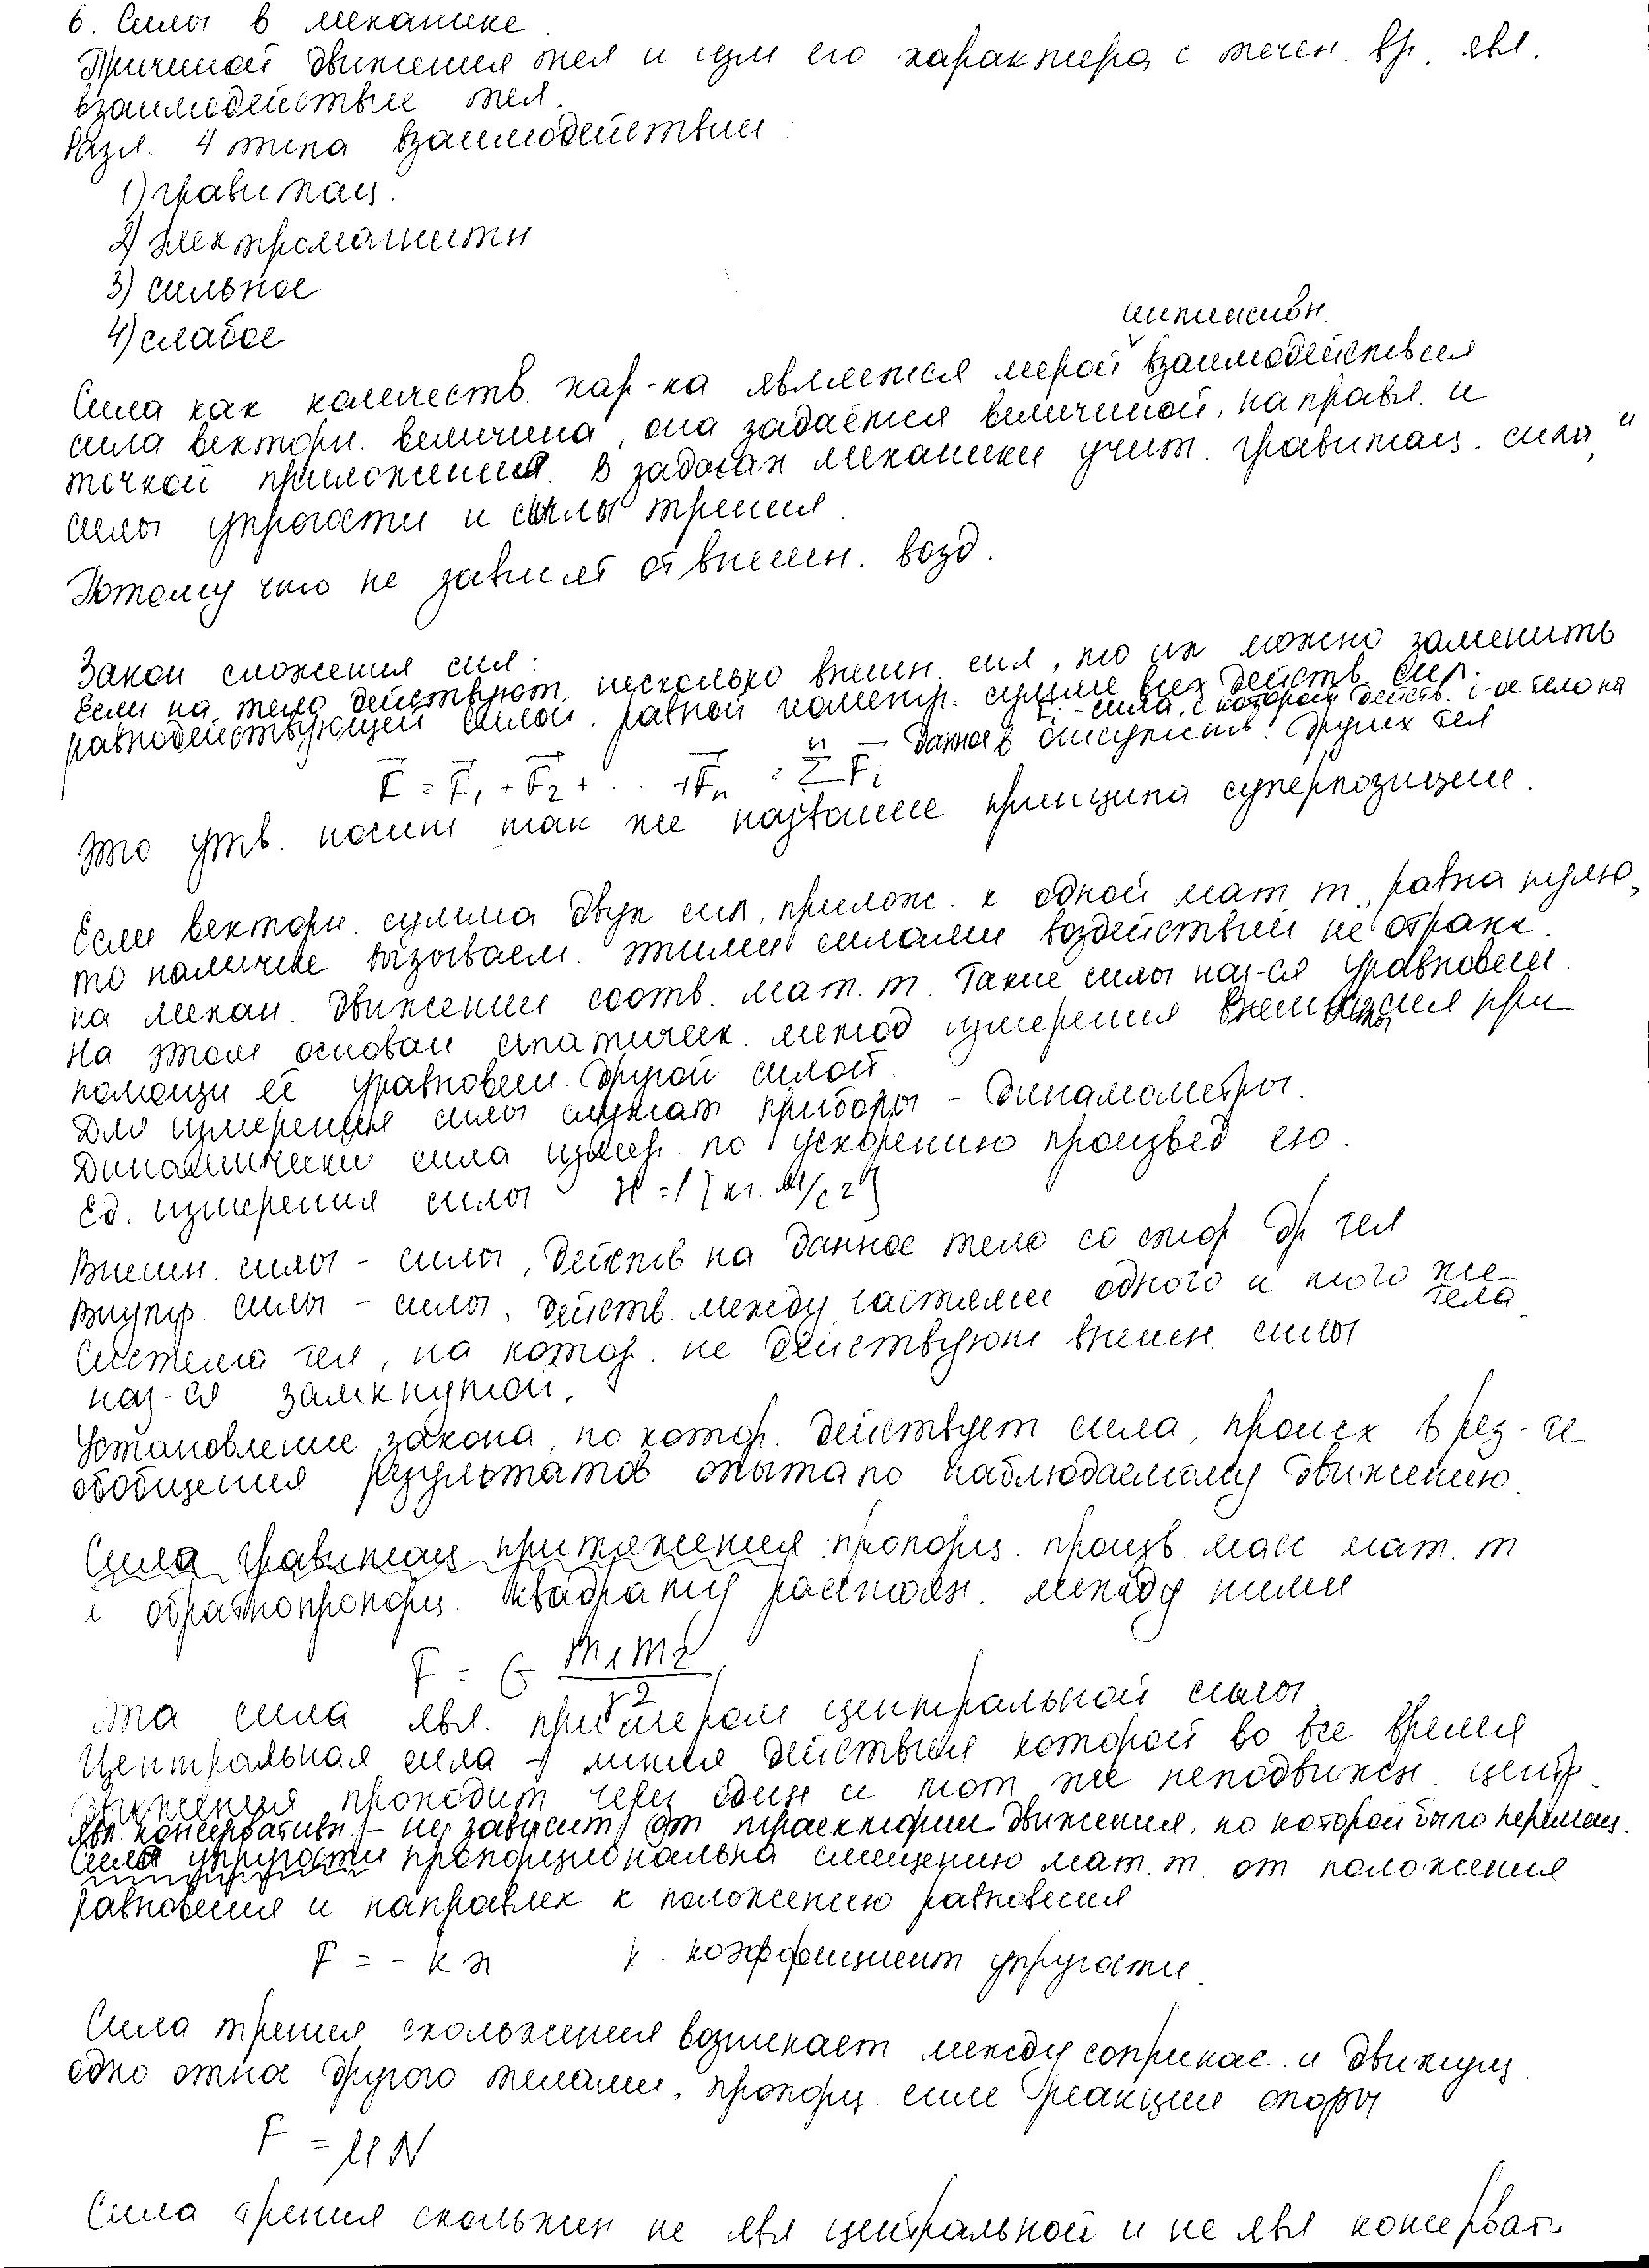 6. Силы в механике.
Причиной движения тел и изм его характера с течен. вр. явл.
взаимодействие тел.
Разл. 4 типа взаимодействии:
1) гравитац.
2) электромагнитн
3) сильное
4) слабое
интенсивн.
Сила как количеств. хар-ка является мерой взаимодействия
сила векторн. величина, она задаётся величиной, направл. и
точкой приложения. В задачах механики учит. гравитац. силы,
силы упругости и силы трения.
Потому что не зависят от внешн. возд.
Закон сложения сил:
Если на тело действуют несколько внешн. сил, то их можно заменить
равнодействующей силой, равной геометр. сумме всех действ. сил.
Fi - сила, с которой действ. i-ое тело на
данное в отсутств. других тел
F = F1 + F2 + . . . +Fn = Σ Fi
Это утв. носит так же название принципа суперпозиции.
Если векторн. сумма двух сил, прилож. к одной мат. т., равна нулю,
то наличие вызываем. этими силами воздействий не отраж.
на механ. движении соотв. мат. т. Такие силы наз-ся уравновеш.
На этом основан статическ. метод измерения силы при
помощи её уравновеш. другой силой.
Для измерения силы служат приборы - динамометры.
Динамически сила измер. по ускорению произвед ею.
Ед. измерения силы Н = 1 [кг. м/с2]
Внешн. силы - силы, действ на данное тело со стор. др тел
Внутр. силы - силы, действ. между частями одного и того же
тела.
Система тел, на котор. не действуют внешн. силы
наз-ся замкнутой.
Установление закона, по котор. действует сила, происх в рез-те
обобщения результатов опыта по наблюдаемому движению.
Сила гравитац притяжения пропорц. произв. масс мат. т
и обратнопропорц. квадрату расстоян. между ними
F = G m1m2/r2
Эта сила явл. примером центральной силы.
Центральная сила - линия действия которой во все время
движения проходит через один и тот же неподвижн. центр.
явл. консервативн. - не зависит от траектории движения, по которой было перемещ.
Сила упругости пропорциональна смещению мат. т. от положения
равновесия и направлен к положению равновесия
F = - kx k - коэффициент упругости.
Сила трения скольжения возникает между соприкас. и движущ.
одно отн-а другого телами, пропорц. силе реакции опоры
F = μN
Сила трения скольжен не явл центральной и не явл консерват.